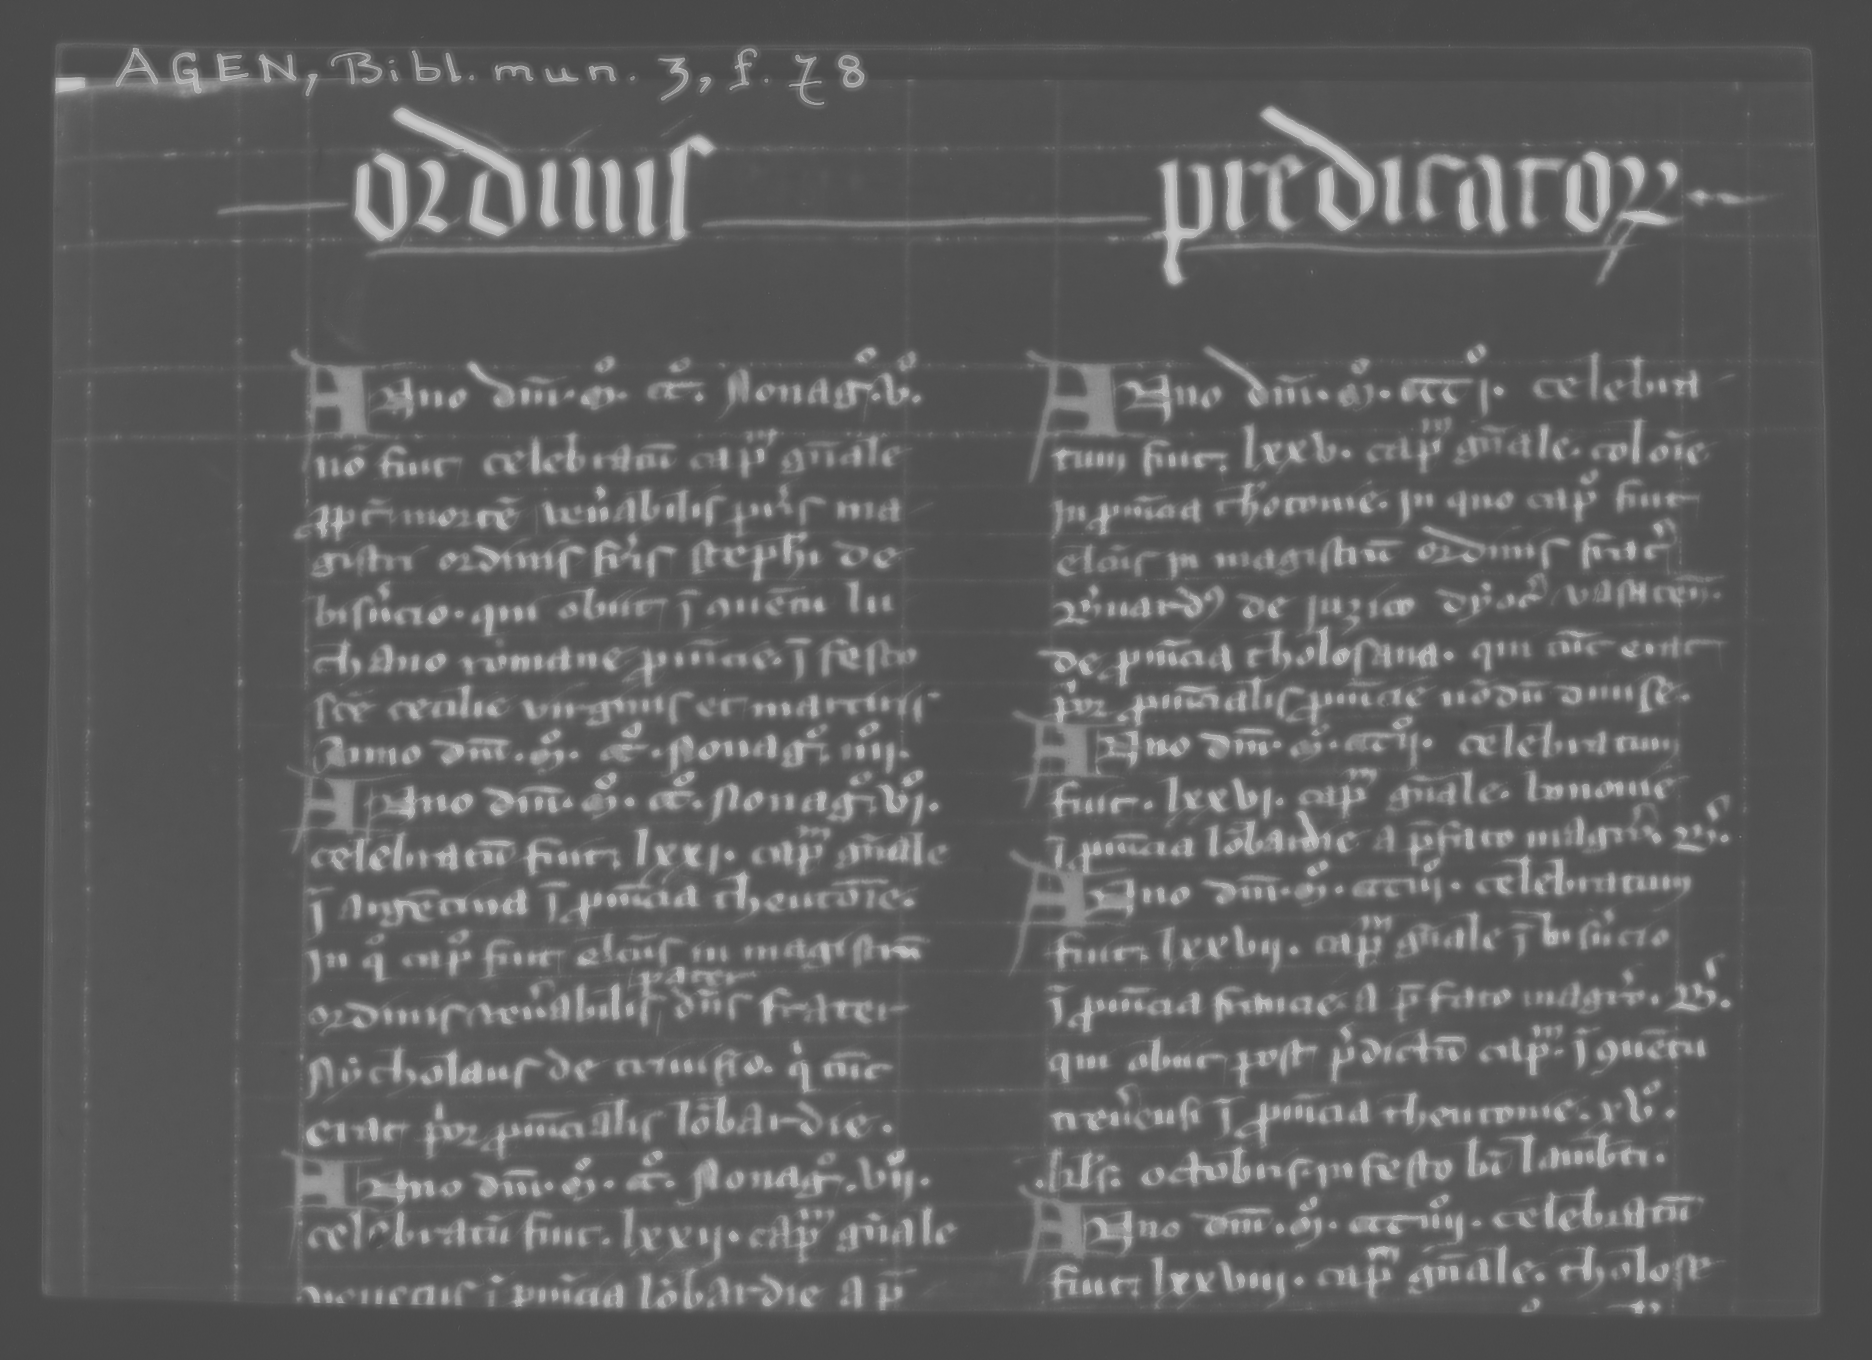 AGEN, Bibl. mun. 3, f. 78
ordinis predicatoꝝ
Anno dñi. mº. ccº. Nonagº. vº.
nō fuit celebratū capᵐ gñale
ꝓpt̄ mortē ven̄abilis pr̄is ma
gistri ordinis fr̄is steph̄i de
bisūcio. qui obiit ī ꝯuētu lu
chano romane ꝓuīcie. ī festo
scē cecilie virginis et martiris
Anno dñi. mº. ccº. Nonagº. iiijº.
Anno dñi. mº. ccº. Nonagº. vjº.
celebratū fuit. lxxj. capᵐ gñale
ī Argētina ī ꝓuīcia theutoīe.
In qº capº fuit elcūs in magistrū
ordinis ven̄abilis pater dn̄s frater
Nycholaus de taruisio. qⁱ tūc
erat pⁱor ꝓuīcialis lōbardie.
Anno dñi. mº. ccº. Nonagº. vijº.
celebratū fuit. lxxij. capᵐ gñale
venecijs ī ꝓuīcia lōbardie a p̄
Anno dñi. mº. cccjº. celebra
tum fuit. lxxv. capᵐ gñale. coloīe
In ꝓuīcia thotonie. In quo capº fuit
elcūs in magistrū ordinis frat̄
Bn̄ardꝰ de juzico dyoc̄ vasatēn.
de ꝓuīcia tholosana. qui tūc erat
pⁱor ꝓuīcialis ꝓuīcie nōdū diuise.
Anno dñi. mº. cccijº. celebratum
fuit. lxxvj. capᵐ gñale. bononie
ī ꝓuīcia lōbardie a p̄fato magrō. B̄.
Anno dñi. mº. ccciijº. celebratum
fuit. lxxvij. capᵐ gñale ī bisūcio
ī ꝓuīcia francie. a p̄fato magrō. B̄.
qui obiit post p̄dictū capᵐ. ī ꝯuētu
treūensi ī ꝓuīcia theutonie. xvº.
kl̄s. octobris. in festo bī lamb̄ti.
Anno dñi. mº. ccciiijº. celebratū
fuit. lxxviij. capᵐ gñale. tholose